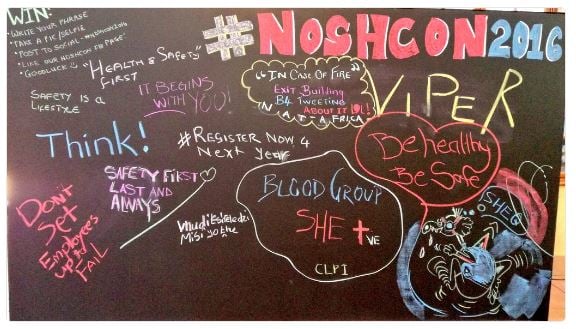 #NOSHCON2016
WIN:
WRITE YOUR PHRASE
* TAKE A PIC/SELFIE
* LIKE OUR NOSHCON FB PAGE
* GOODLUCK
"HEALTH & SAFETY"
FIRST
SAFETY IS A
LIFESTYLE
IT BEGINS
WITH YOU!
"IN CASE OF FIRE"
EXIT BUILDING
B4 TWEETING
ABOUT IT LOL!
VIPER
Think!
#REGISTER NOW 4
Next Year
Be healthy
Be Safe
SAFETY FIRST
LAST AND
ALWAYS
BLOOD GROUP
SHE +VE
CLPI
SHEQ
DON'T
Set
Employees
up to
FAIL